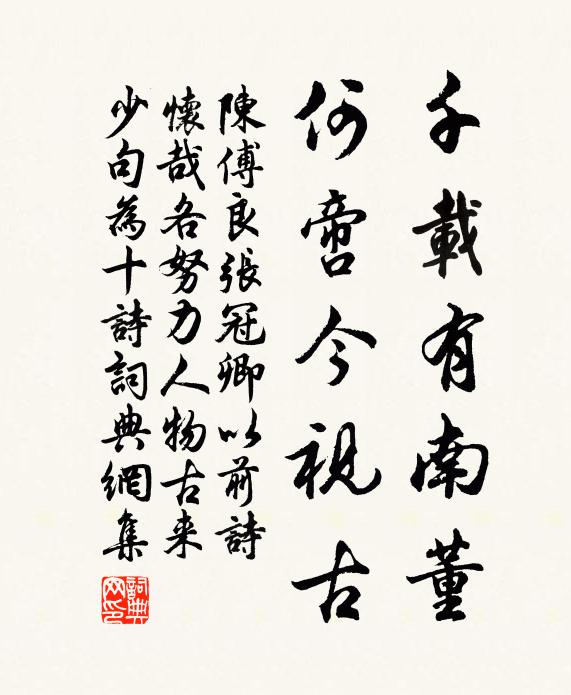 千載有南董
何啻今視古
陳傅良張冠卿以前詩
懷哉各努力人物古来
少句為十詩詞典網集
詞典